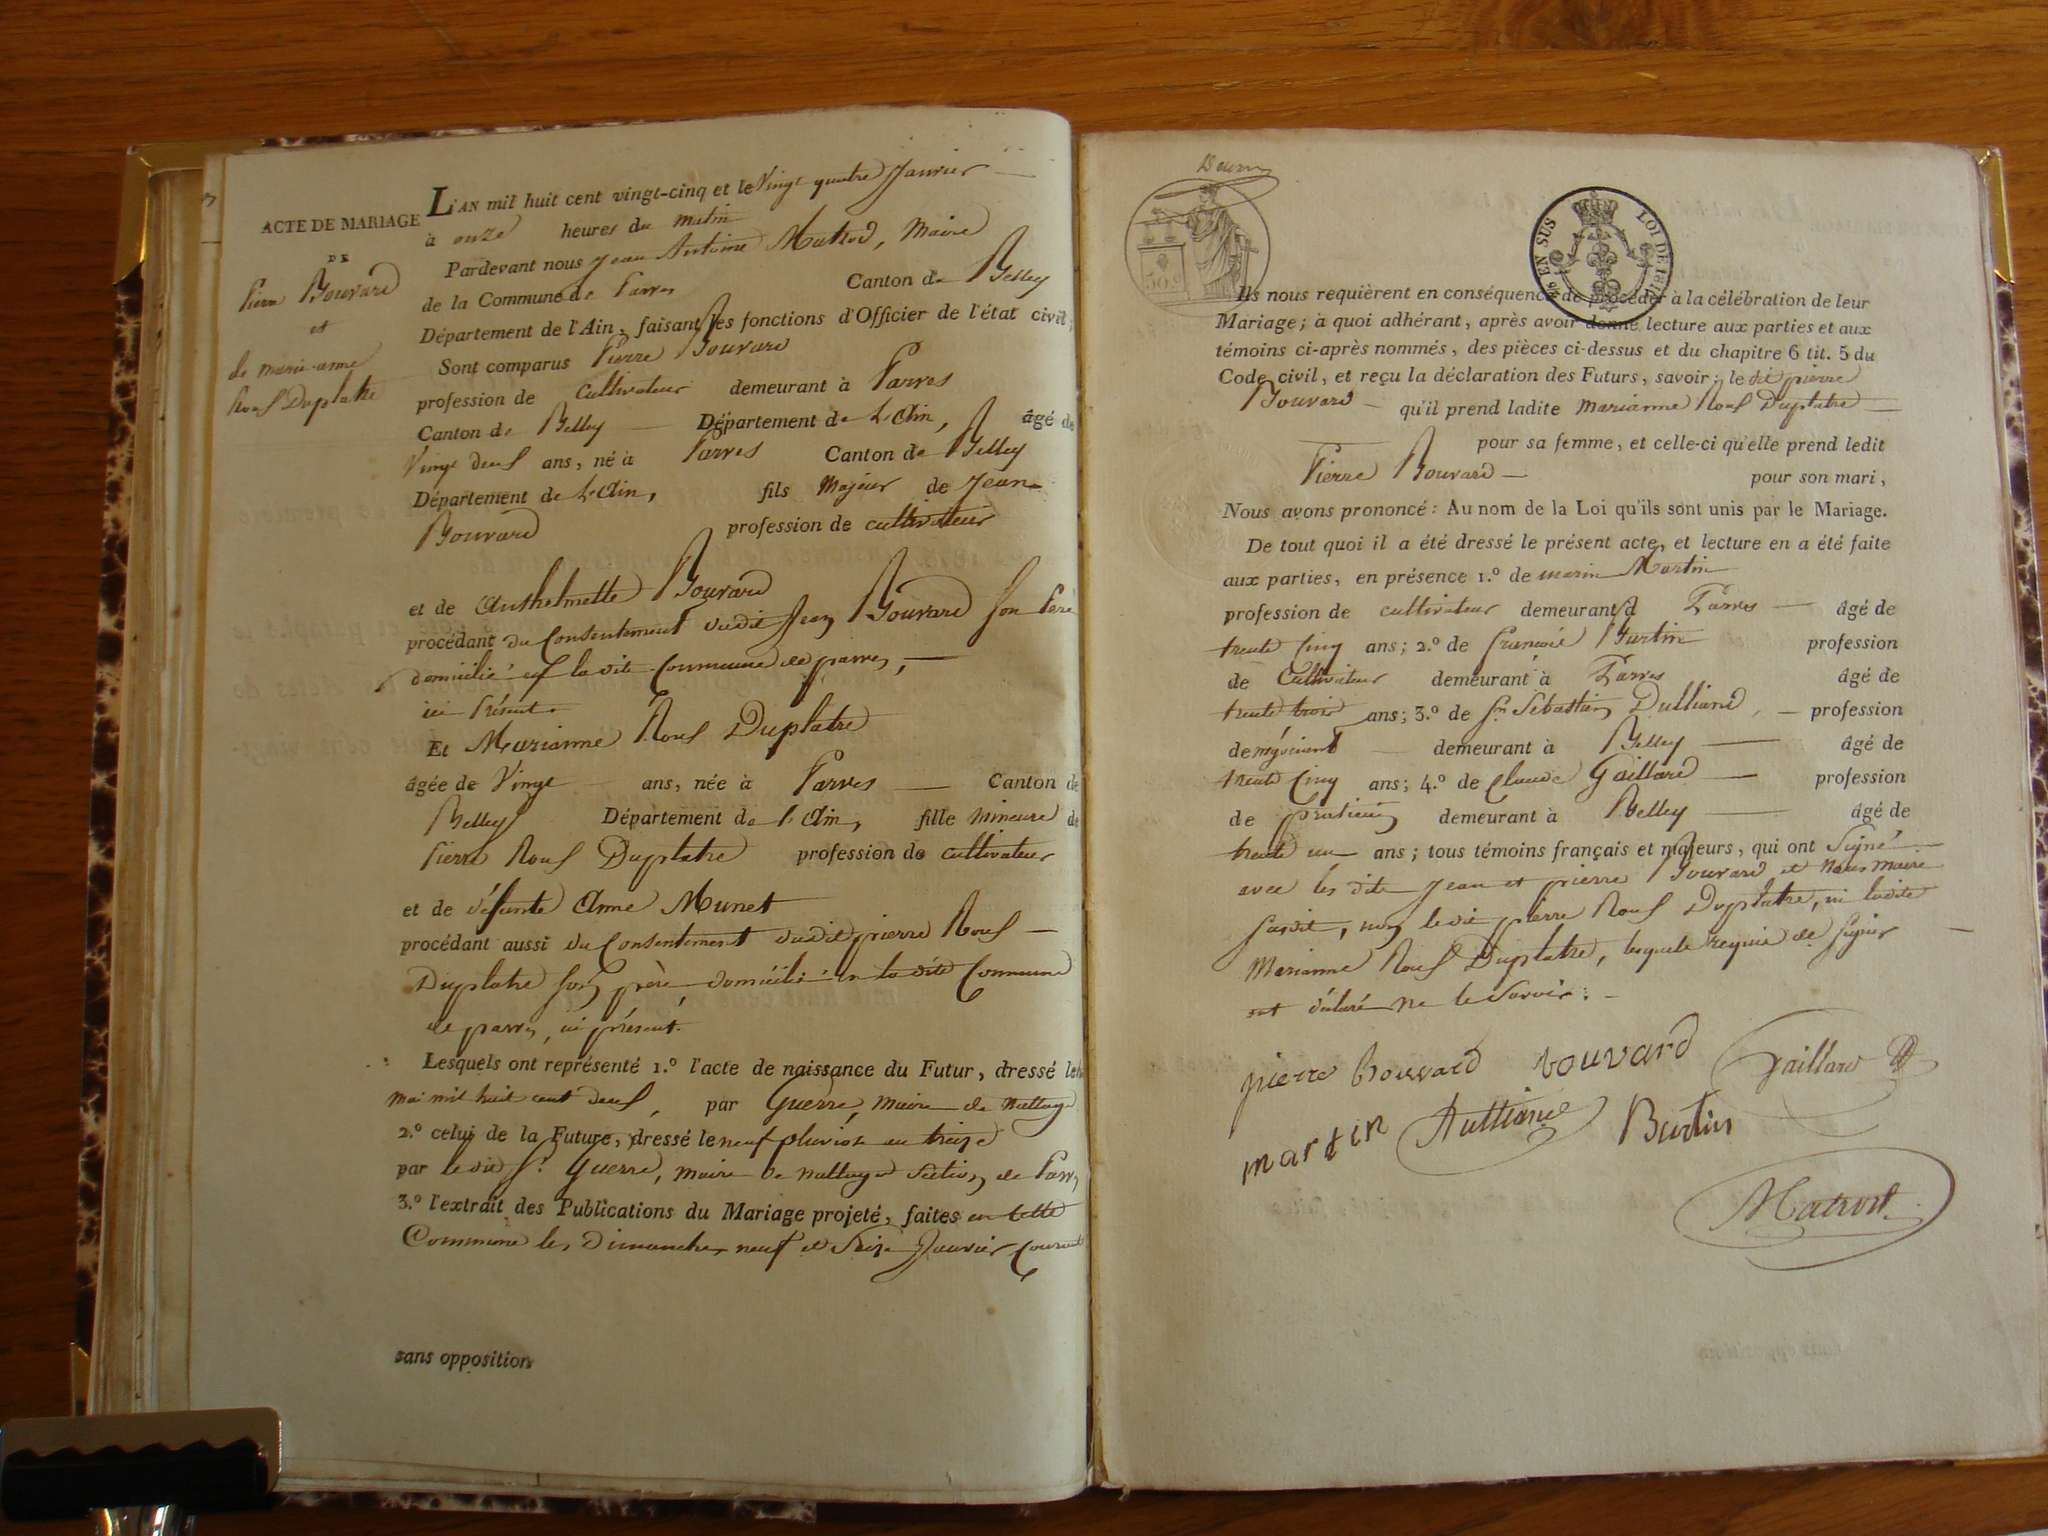 ACTE DE MARIAGE
DE
Pierre Bouvard
et
de marie-anne
Roux Duplatre
L'AN mil huit cent vingt-cinq et le Vingt quatre Janvier
à onze heures du matin
Pardevant nous Jean Antoine Matrod, Maire
de la Commune de Parves Canton de Belley
Département de l'Ain, faisant les fonctions d'Officier de l'état civil;
Sont comparus Pierre Bouvard
profession de cultivateur demeurant à Parves
Canton de Belley Département de L'Ain, âgé de
Vingt deux ans, né à Parves Canton de Belley
Département de L'Ain, fils Majeur de Jean
Bouvard profession de cultivateur
et de Anthelmette Bouvard
procédant du Consentement dudit Jean Bouvard son Père
domicilié en la dite Commune de parves,
ici Présent.
Et Marianne Roux Duplatre
âgée de Vingt ans, née à Parves Canton de
Belley Département de l'Ain, fille mineure de
Pierre Roux Duplatre profession de cultivateur
et de défunte Anne Munet
procédant aussi du Consentement dudit pierre Roux
Duplatre son père domicilié en la dite Commune
de parves, ici présent.
Lesquels ont représenté 1.º l'acte de naissance du Futur, dressé le
mai mil huit cent deux, par Guerre, Maire de Nattage
2.º celui de la Future, dressé le neuf pluviose an treize
par le dit Sr. Guerre, Maire de Nattage Section de Parves
3.º l'extrait des Publications du Mariage projeté, faites en cette
Commune les Dimanches neuf et Seize Janvier Courant
sans opposition
EN SUS LOI DE
Ils nous requièrent en conséquence de procéder à la célébration de leur
Mariage; à quoi adhérant, après avoir donné lecture aux parties et aux
témoins ci-après nommés, des pièces ci-dessus et du chapitre 6 tit. 5 du
Code civil, et reçu la déclaration des Futurs, savoir: le dit pierre
Bouvard qu'il prend ladite Marianne Roux Duplatre
pour sa femme, et celle-ci qu'elle prend ledit
Pierre Bouvard pour son mari,
Nous avons prononcé: Au nom de la Loi qu'ils sont unis par le Mariage.
De tout quoi il a été dressé le présent acte, et lecture en a été faite
aux parties, en présence 1.º de marin Martin
profession de cultivateur demeurant à Parves âgé de
trente Cinq ans; 2.º de françois Burtin profession
de Cultivateur demeurant à Parves âgé de
trente trois ans; 3.º de Sn Sébastien Dulliand, profession
de négociant demeurant à Belley âgé de
trente Cinq ans; 4.º de Claude Gaillard profession
de praticien demeurant à Belley âgé de
trente un ans; tous témoins français et majeurs, qui ont Signé
avec les dits Jean et pierre Bouvard et Nous Maire
susdit, non le dit pierre Roux Duplatre, ni ladite
Marianne Roux Duplatre, lesquels requis de signer
ont déclaré ne le Savoir.
pierre bouvard bouvard Gaillard
martin Dulliand Burtin
Matrod